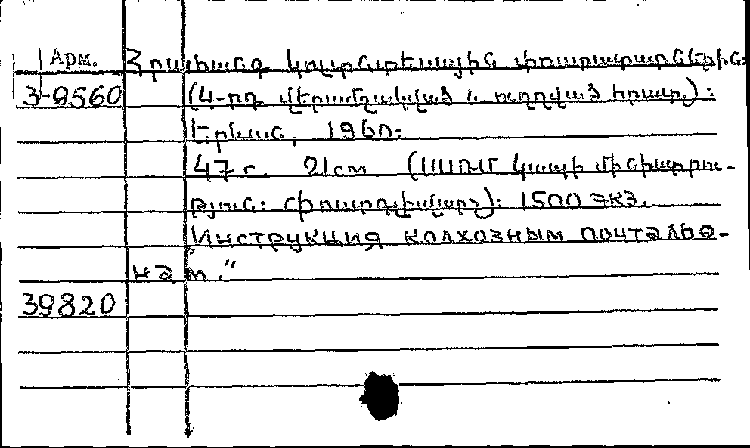 Арм.
Հրահանգ կոլտնտեսային փոստատարներին:
3-9560
(4-րդ վերամշակված և ուղղված հրատ.):
Երևան, 1960:
47 с. 21см (ՍՍՌՄ կապի մինիստրու-
թյուն: 1500 экз.
"Инструкция колхозным почтальо-
нам."
39820